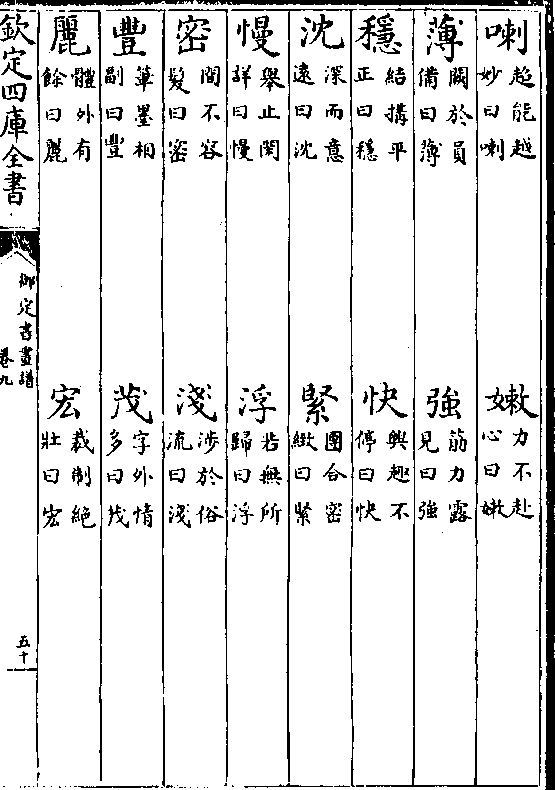 喇超能越妙曰喇 嫩力不赴心曰嫩
薄闕於員備曰薄 強筋力露見曰強
穩結搆平正曰穩 快興趣不停曰快
沈深而意遠曰沈 緊團合密緻曰緊
慢舉止閑詳曰慢 浮若無所歸曰浮
密間不容髮曰密 淺涉於俗流曰淺
豐筆墨相副曰豐 茂字外情多曰茂
麗體外有餘曰麗 宏裁制絶壯曰宏
欽定四庫全書
御定書畫譜
卷九
五十